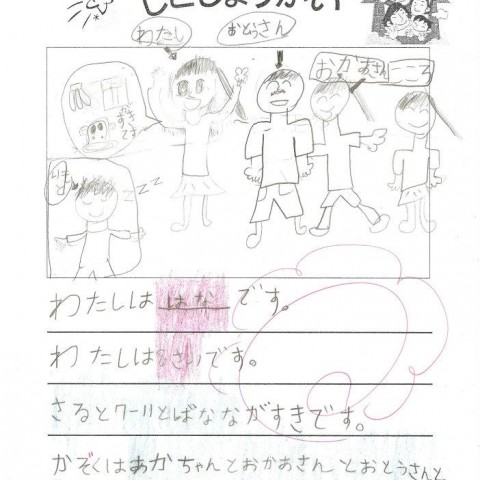 じこしょうかい
わたし
おとうさん
おかあさん
こころ
すきです
わたしは はな です。
わたしは さいです。
さるとクールとばなながすきです。
かぞくはあかちゃんとおかあさんとおとうさんと